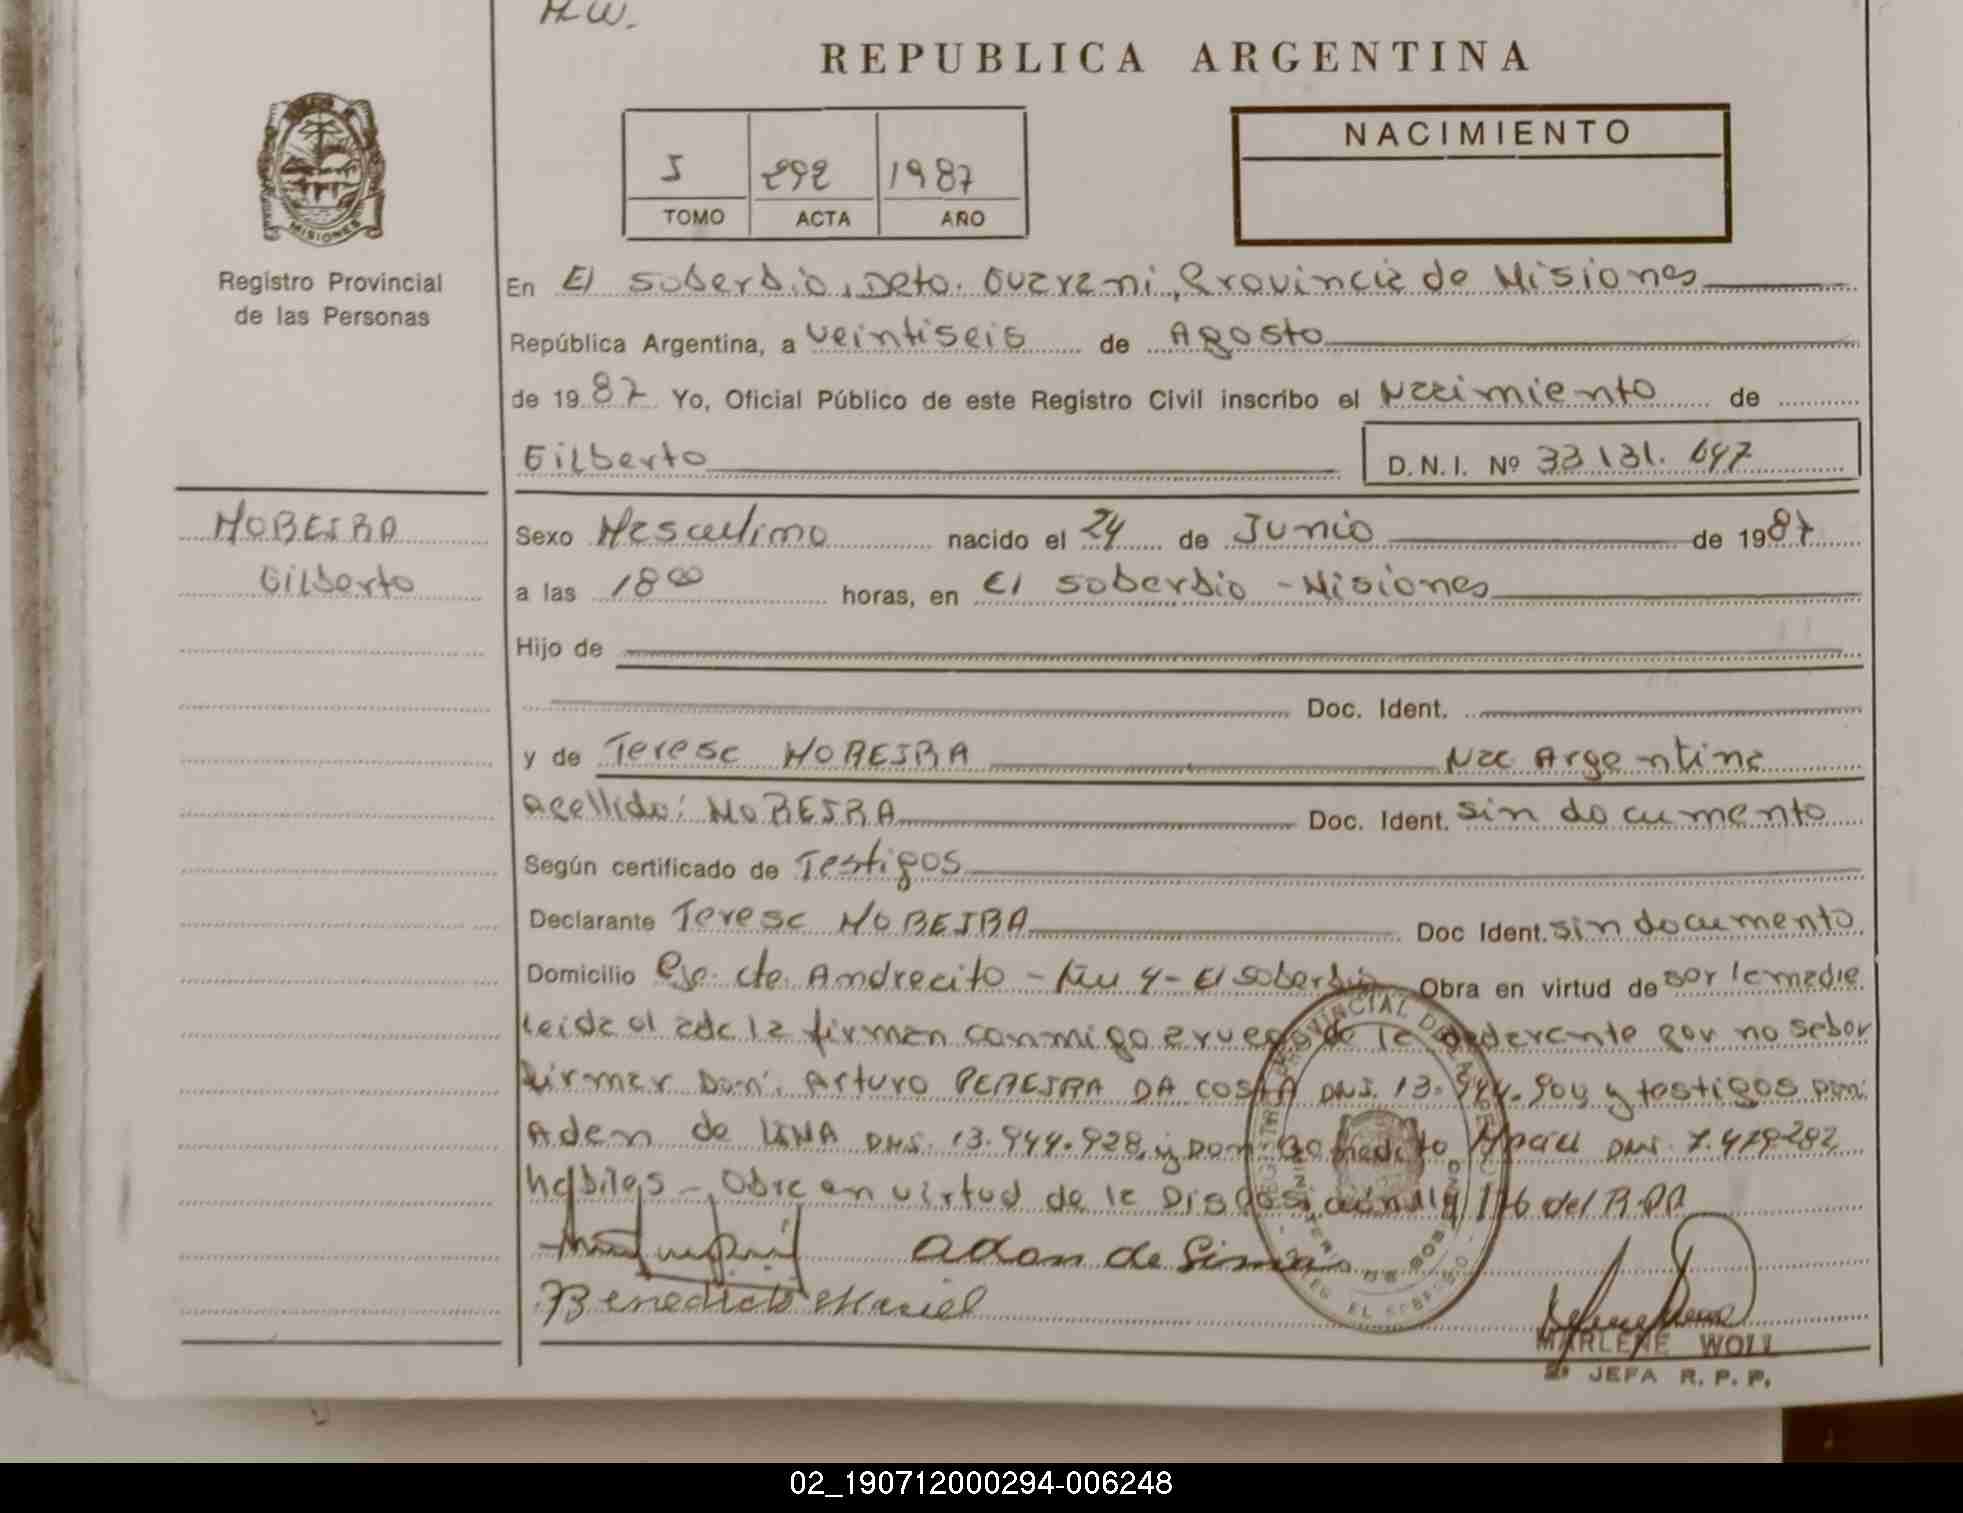 M.W.
REPUBLICA ARGENTINA
NACIMIENTO
I 292 1987
TOMO ACTA AÑO
MISIONES
Registro Provincial
de las Personas
En El Soberbio, Deto. Guarani, Provincia de Misiones
República Argentina, a veintiseis de Agosto
de 1987 Yo, Oficial Público de este Registro Civil inscribo el Nacimiento de
Gilberto D.N.I. Nº 33 131. 647
MOREIRA
Gilberto
Sexo Masculino nacido el 24 de Junio de 1987
a las 18 00 horas, en El Soberbio - Misiones
Hijo de
Doc. Ident.
y de Teresa MOREIRA Nac Argentina
apellido: MOREIRA Doc. Ident. sin documento
Según certificado de Testigos
Declarante Teresa MOREIRA Doc Ident. sin documento
Domicilio Cte. Andrecito - Km 4 - El Soberbio Obra en virtud de ser la madre
leida el acta la firman conmigo a ruego de la declarante por no saber
firmar Don: Arturo PEREIRA DA COSTA DNI. 13.944.904 y testigos Don:
Adan de LIMA DNI. 13.944.928 y Don Benedicto Maciel DNI 7.479.282
habiles - Obra en virtud de la Disposicion 114/176 del R.P.P
Adan de Lima
Benedicto Maciel
MARLENE WOLL
JEFA R. P. P.
02_190712000294-006248